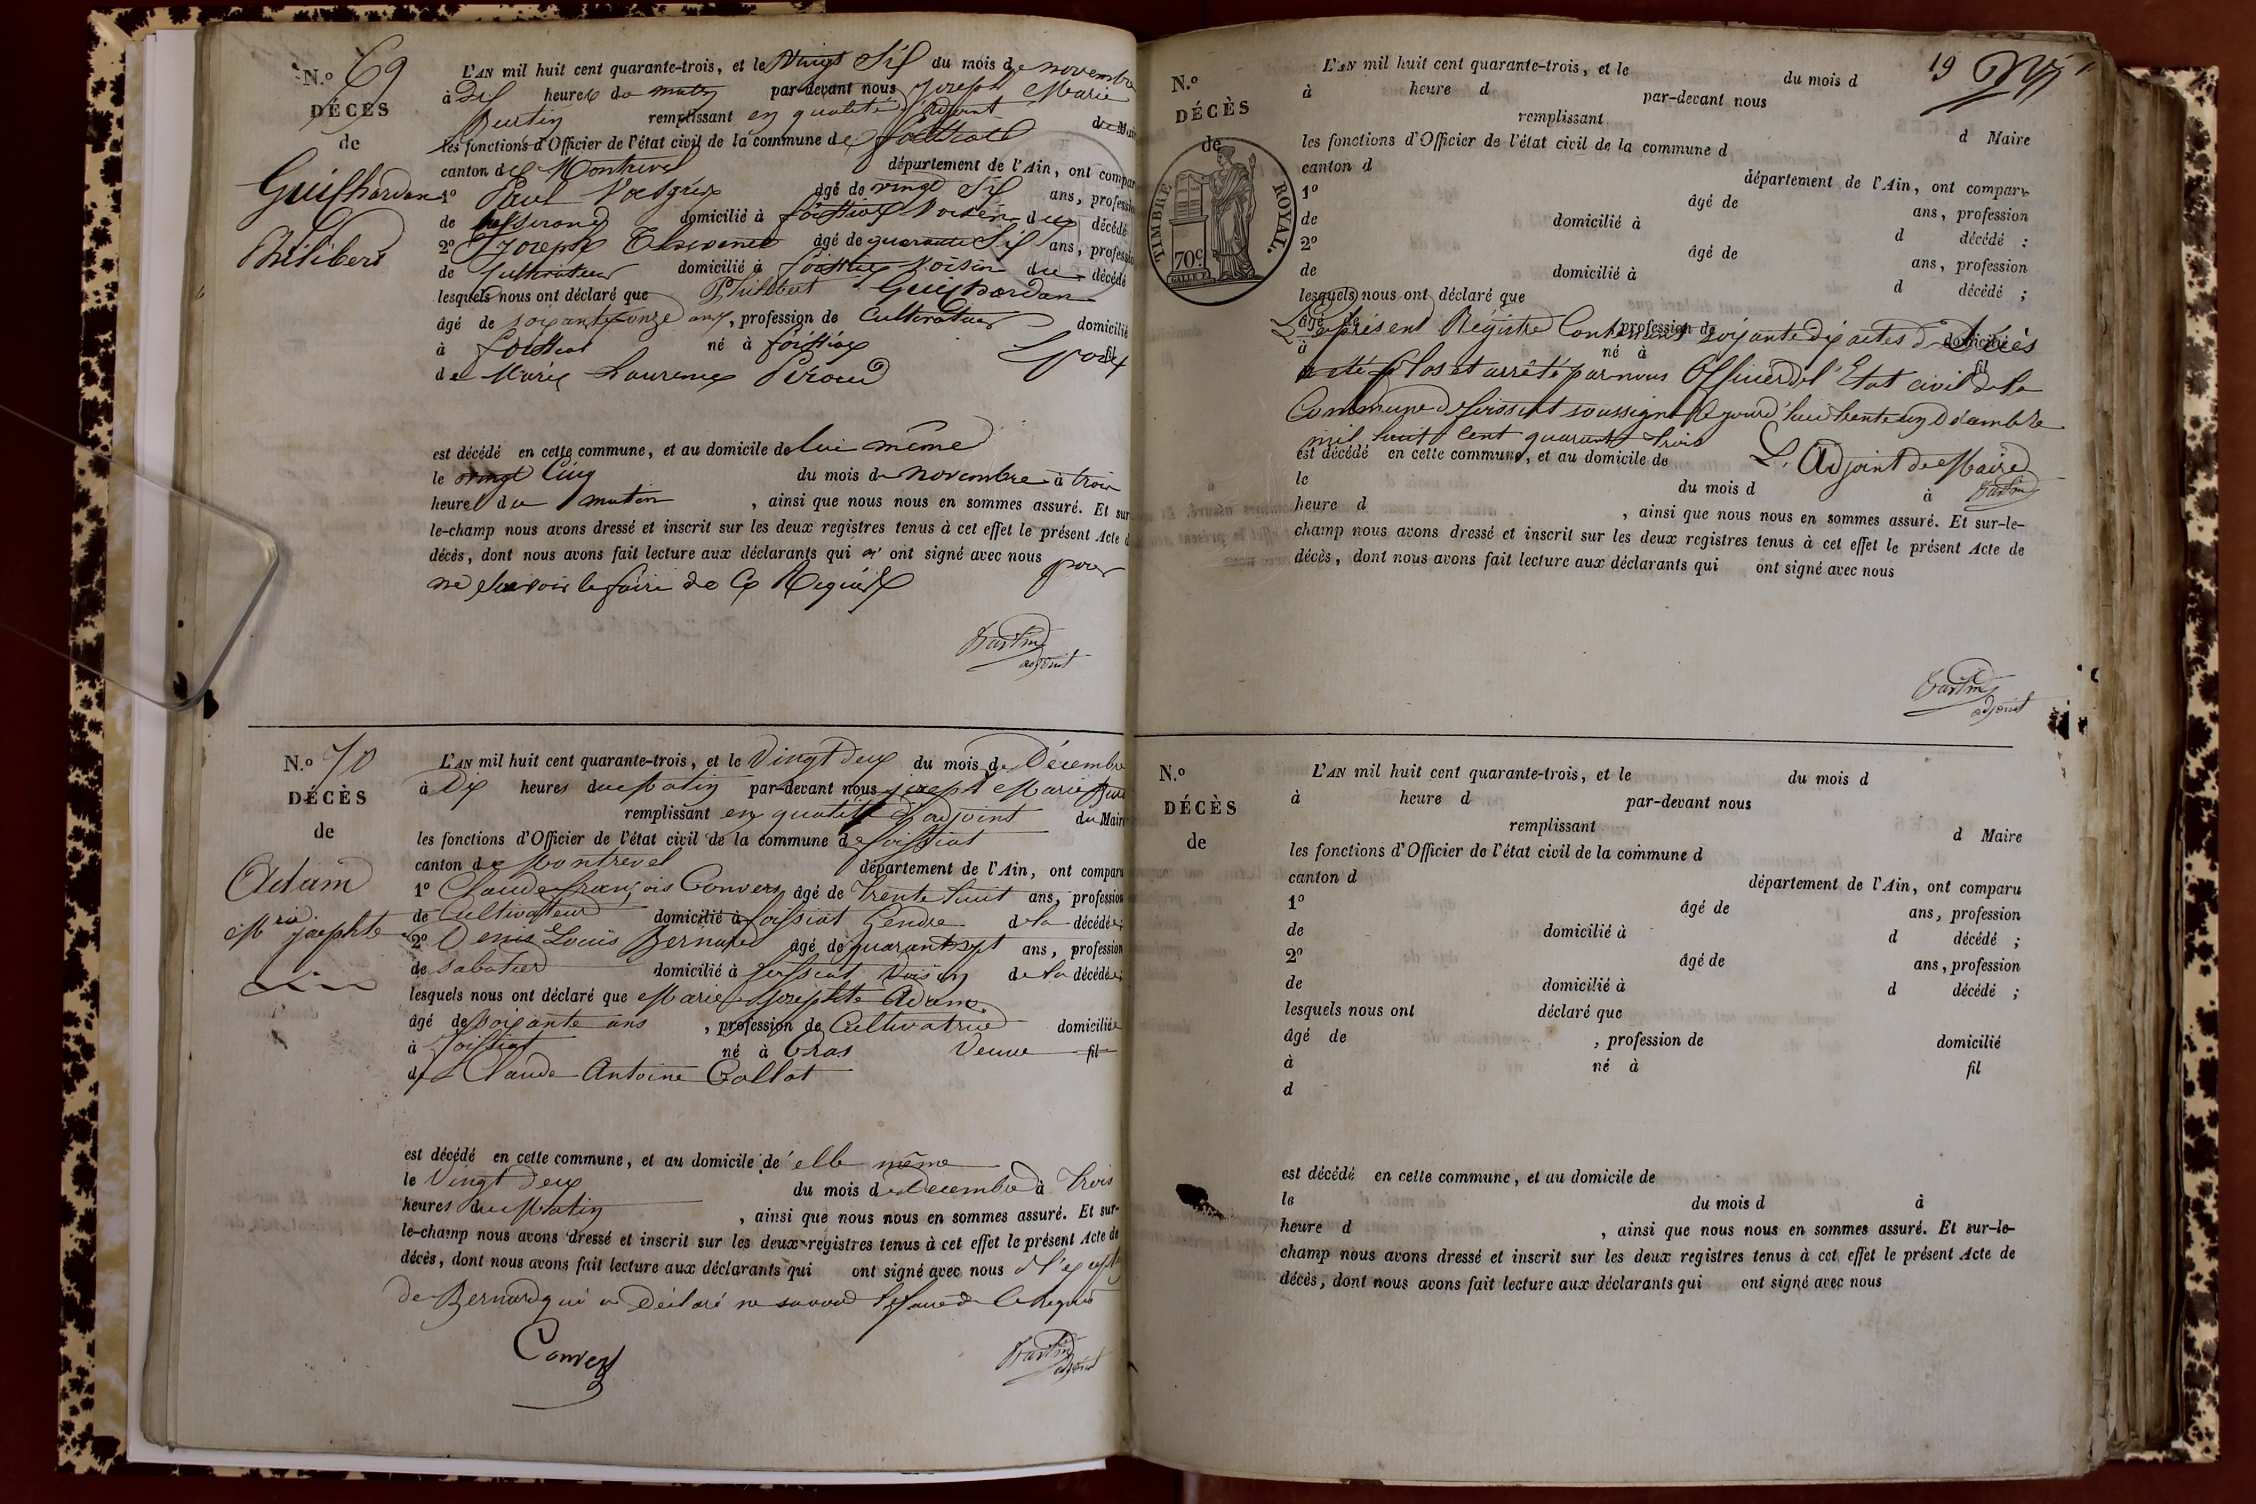 N.º 69
DÉCÈS
de
Guilhardan
Philibert
L'AN mil huit cent quarante-trois, et le vingt Six du mois de novembre
à Dix heures du matin par-devant nous Joseph Marie
Burtin remplissant en qualité d'adjoint du Mair
les fonctions d'Officier de l'état civil de la commune de foissiat
canton de Montrevel département de l'Ain, ont compar
1º Paul âgé de vingt Six ans, professio
de tisserand domicilié à foissiat Voisin du décédé
2º Joseph Thevenet âgé de quarante Six ans, professio
de Cultivateur domicilié à foissiat Voisin du décédé
lesquels nous ont déclaré que Philibert Guilhardan
âgé de soixante onze ans, profession de Cultivateur domicilié
à foissiat né à foissiat Epoux fil
de Marie Laurence Péroud
est décédé en cette commune, et au domicile de lui même
le vingt Cinq du mois de novembre à trois
heures du matin , ainsi que nous nous en sommes assuré. Et sur
le-champ nous avons dressé et inscrit sur les deux registres tenus à cet effet le présent Acte d
décès, dont nous avons fait lecture aux déclarants qui n' ont signé avec nous pour
ne Savoir le faire de Ce Requis
Burtin
adjoint
N.º 70
DÉCÈS
de
Adam
Mrie josephte
L'AN mil huit cent quarante-trois, et le Vingt Deux du mois de Décembre
à Dix heures du Matin par-devant nous joseph Marie Burt
remplissant en qualité d'adjoint du Maire
les fonctions d'Officier de l'état civil de la commune de foissiat
canton de Montrevel département de l'Ain, ont comparu
1º Claude françois Convers âgé de trente huit ans, profession
de Cultivateur domicilié à foissiat Gendre de la décédée;
2º Denis Louis Bernard âgé de quarante sept ans, profession
de sabotier domicilié à foissiat Voisin de la décédée;
lesquels nous ont déclaré que Marie josephte Adam
âgé de soixante ans , profession de Cultivatrice domiciliée
à foissiat né à Cras Veuve fil
de Claude Antoine Collot
est décédé en cette commune, et au domicile d'elle même
le Vingt Deux du mois de Decembre à trois
heures du Matin , ainsi que nous nous en sommes assuré. Et sur-
le-champ nous avons dressé et inscrit sur les deux registres tenus à cet effet le présent Acte de
décès, dont nous avons fait lecture aux déclarants qui ont signé avec nous
de Bernard qui a Déclaré ne savoir le faire de Ce Requis
Convers
Burtin
adjoint
19
N.º
DÉCÈS
de
TIMBRE ROYAL.
70c
L'AN mil huit cent quarante-trois, et le du mois d
à heure d par-devant nous
remplissant d Maire
les fonctions d'Officier de l'état civil de la commune d
canton d département de l'Ain, ont comparu
1º âgé de ans, profession
de domicilié à d décédé ;
2º âgé de ans, profession
de domicilié à d décédé ;
lesquels nous ont déclaré que
âgé de profession de domicilié
Le présent Régistre Contenant soixante dix actes de Décès
à né à fil
a été Clos et arrêté par nous Officier de l'Etat civil de la
Commune de foissiat soussigné Ce jourd'hui trente un Décembre
mil huit cent quarante trois
est décédé en cette commune, et au domicile de
L'Adjoint de Maire
Burtin
le du mois d à
heure d , ainsi que nous nous en sommes assuré. Et sur-le-
champ nous avons dressé et inscrit sur les deux registres tenus à cet effet le présent Acte de
décès, dont nous avons fait lecture aux déclarants qui ont signé avec nous
Burtin
adjoint
N.º
DÉCÈS
de
L'AN mil huit cent quarante-trois, et le du mois d
à heure d par-devant nous
remplissant d Maire
les fonctions d'Officier de l'état civil de la commune d
canton d département de l'Ain, ont comparu
1º âgé de ans, profession
de domicilié à d décédé ;
2º âgé de ans, profession
de domicilié à d décédé ;
lesquels nous ont déclaré que
âgé de , profession de domicilié
à né à fil
d
est décédé en cette commune, et au domicile de
le du mois d à
heure d , ainsi que nous nous en sommes assuré. Et sur-le-
champ nous avons dressé et inscrit sur les deux registres tenus à cet effet le présent Acte de
décès, dont nous avons fait lecture aux déclarants qui ont signé avec nous